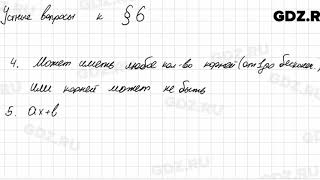 Устные вопросы к §6
GDZ.RU
4. Может иметь любое кол-во корней (от 1 до бесконеч.)
Или корней может не быть
5. ax+b